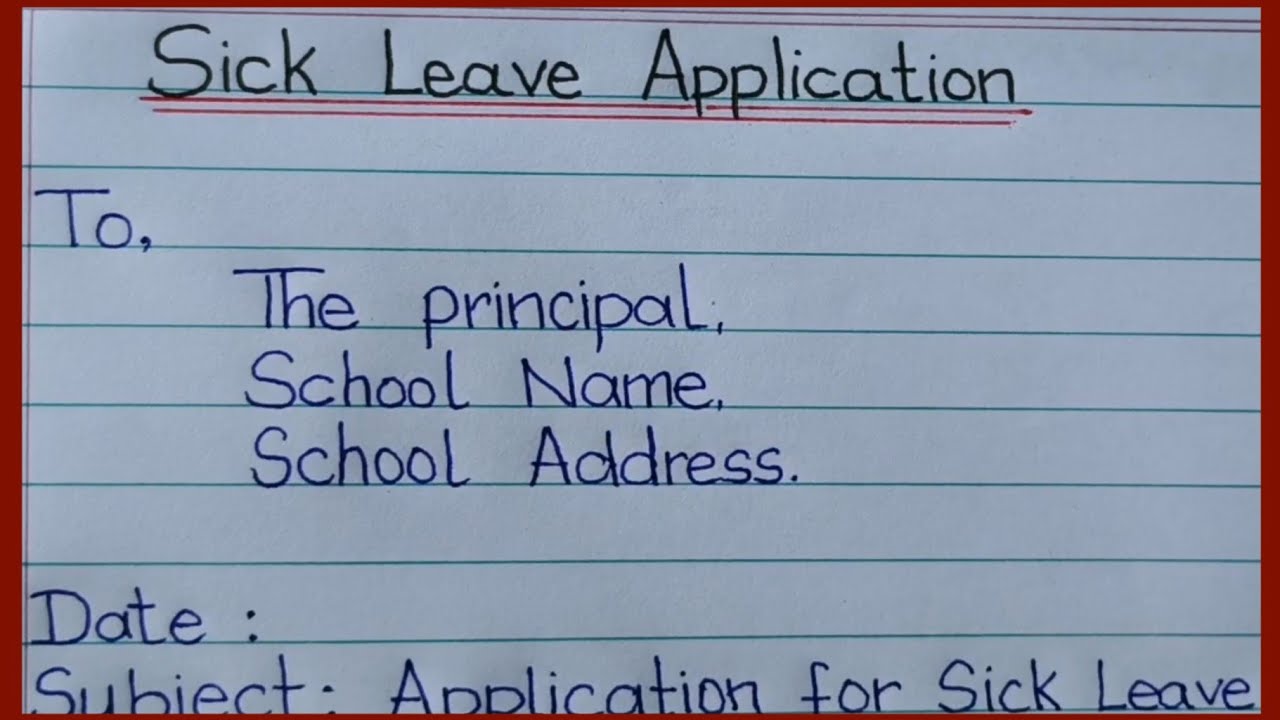 Sick Leave Application
To,
The principal,
School Name,
School Address.
Date :
Subject: Application for Sick Leave